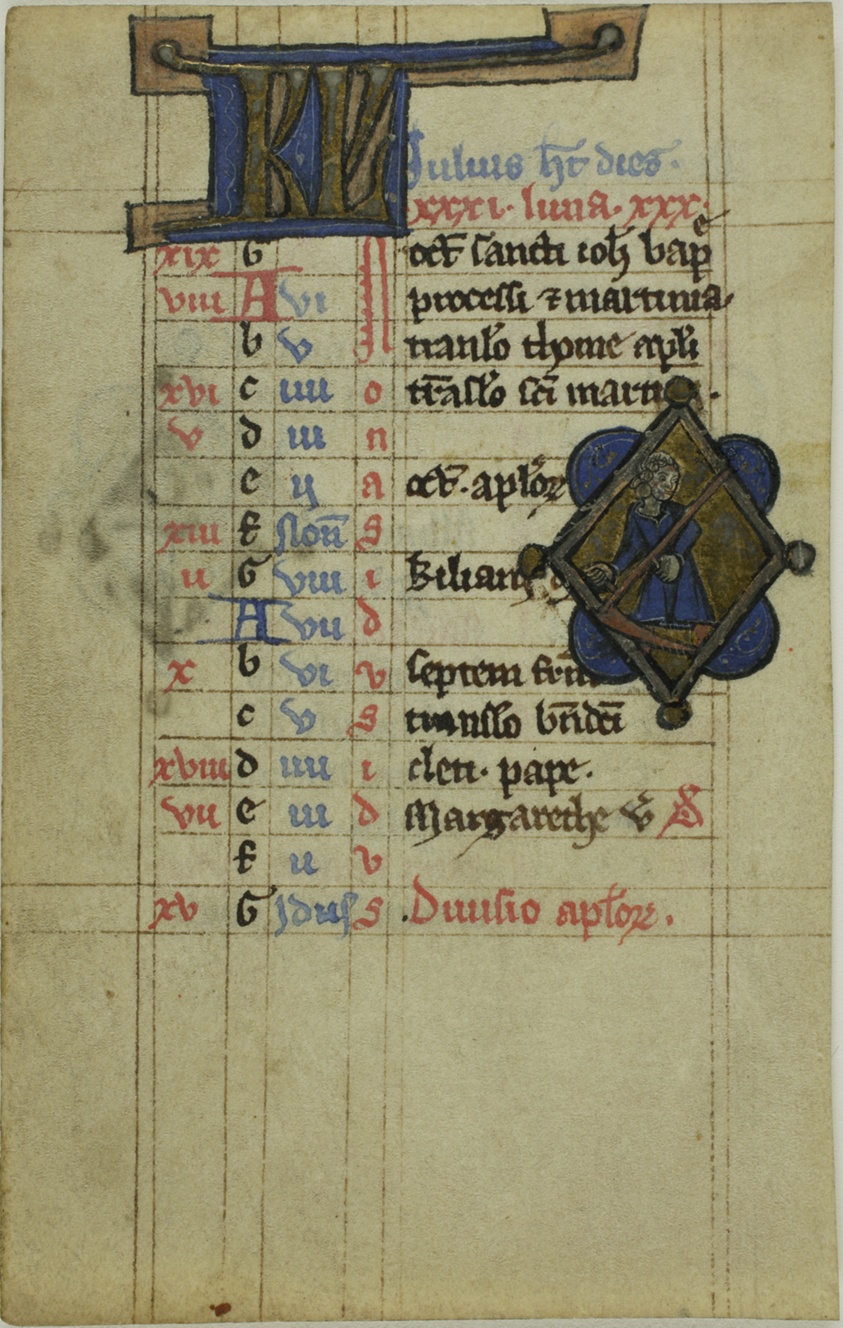 KL Iulius ht dies.
xxxi. luna. xxx.
xix G N oct sancti ioh bap
viii A vi processi ⁊ martinia
b v translo thome apli
xvi c iiii o traslo sci
v d iii n
e ii a oct. aplor
xiii f Non s
ii G viii i Kiliani
A vii d
x b vi v septem
c v s translo bndci
xviii d iiii i cleti. pape.
vii e iii d Margarethe v
f ii v
xv G Idus s .Diuisio aplor.